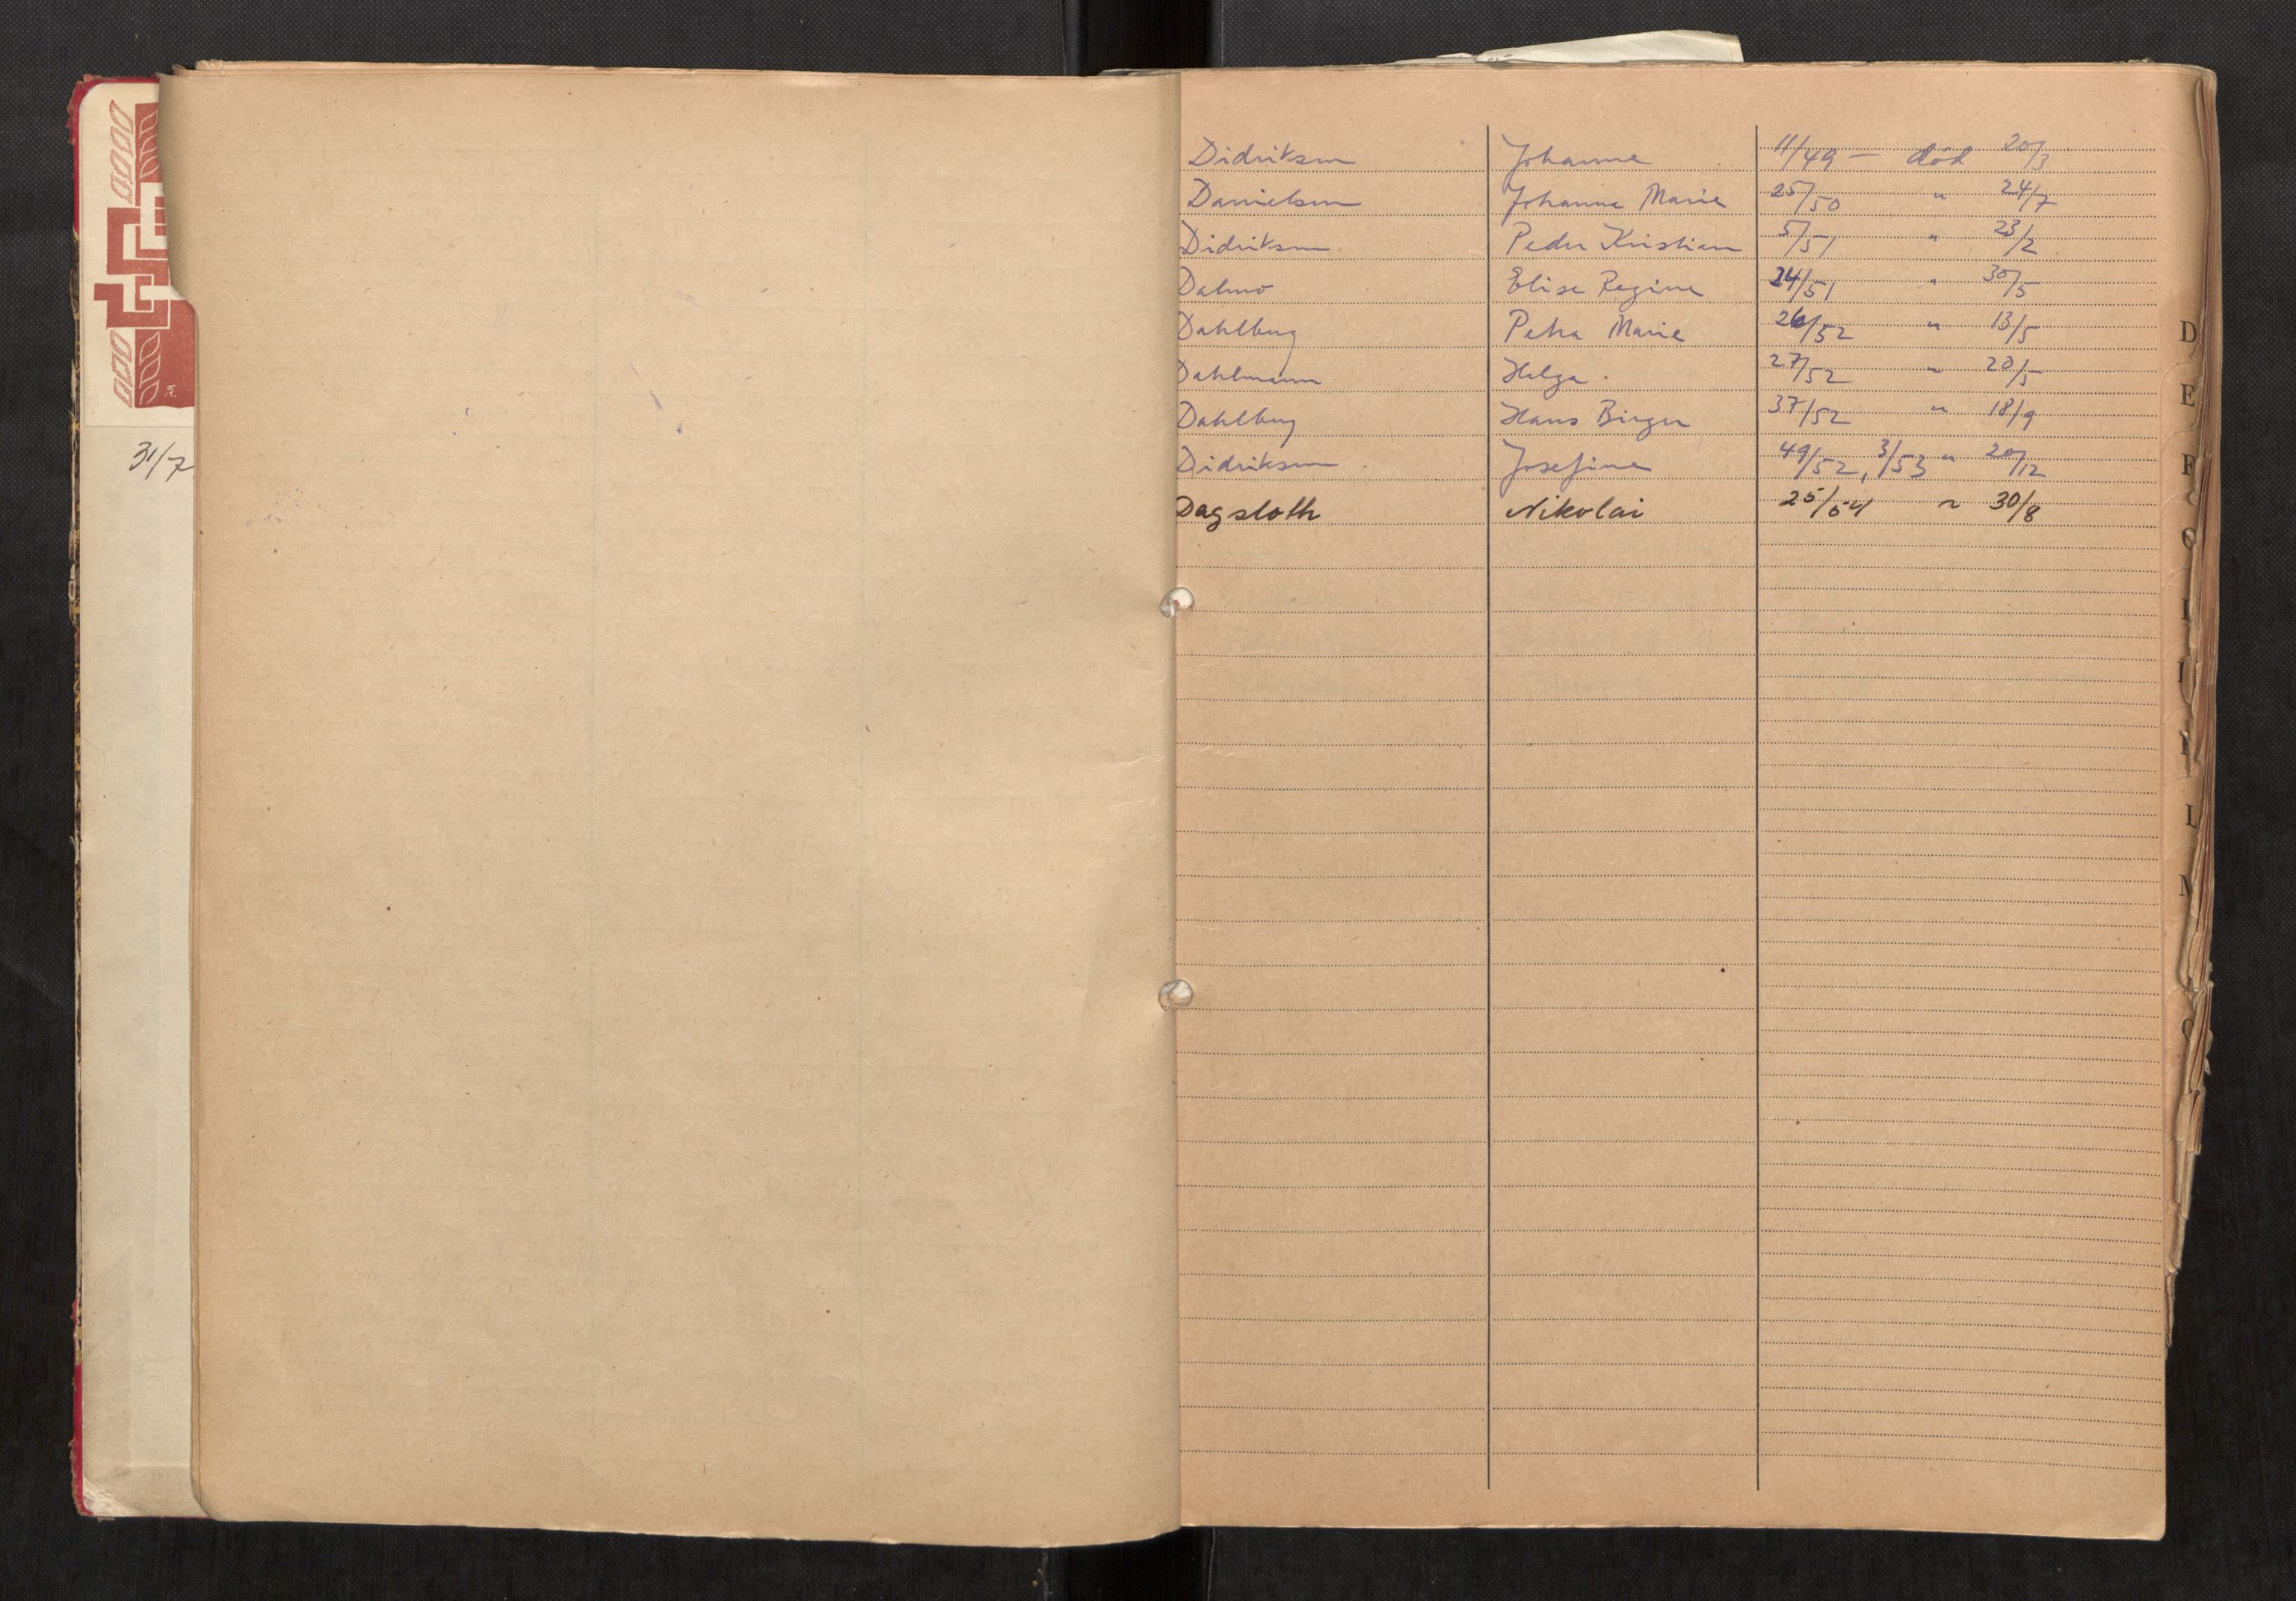 31/7
Didriksen Johanne 11/49 — död 20/3
Danielsen Johanne Marie 25/50 " 24/7
Didriksen Peder Kristian 5/51 " 23/2
Dalmo Elise Regine 24/51 " 30/5
Dahlberg Petra Marie 26/52 " 13/5
Dahlmann Helga 27/52 " 20/5
Dahlberg Hans Birger 37/52 " 18/9
Didriksen Josefine 49/52, 3/53 " 20/12
Dagsloth Nikolai 25/54 " 30/8
D
E
F
L
M